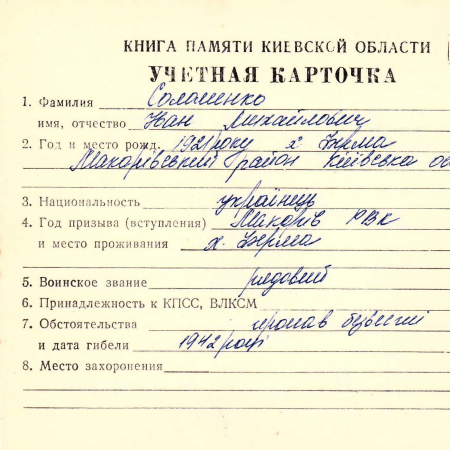 КНИГА ПАМЯТИ КИЕВСКОЙ ОБЛАСТИ
УЧЕТНАЯ КАРТОЧКА
1. Фамилия Соломенко
имя, отчество Іван Михайлович
2. Год и место рожд. 1921 року х Берма
Макарівський район Київська об
3. Национальность українець
4. Год призыва (вступления) Макарів РВК
и место проживания х. Берма
5. Воинское звание рядовий
6. Принадлежность к КПСС, ВЛКСМ
7. Обстоятельства пропав безвісти
и дата гибели 1942 році
8. Место захоронения